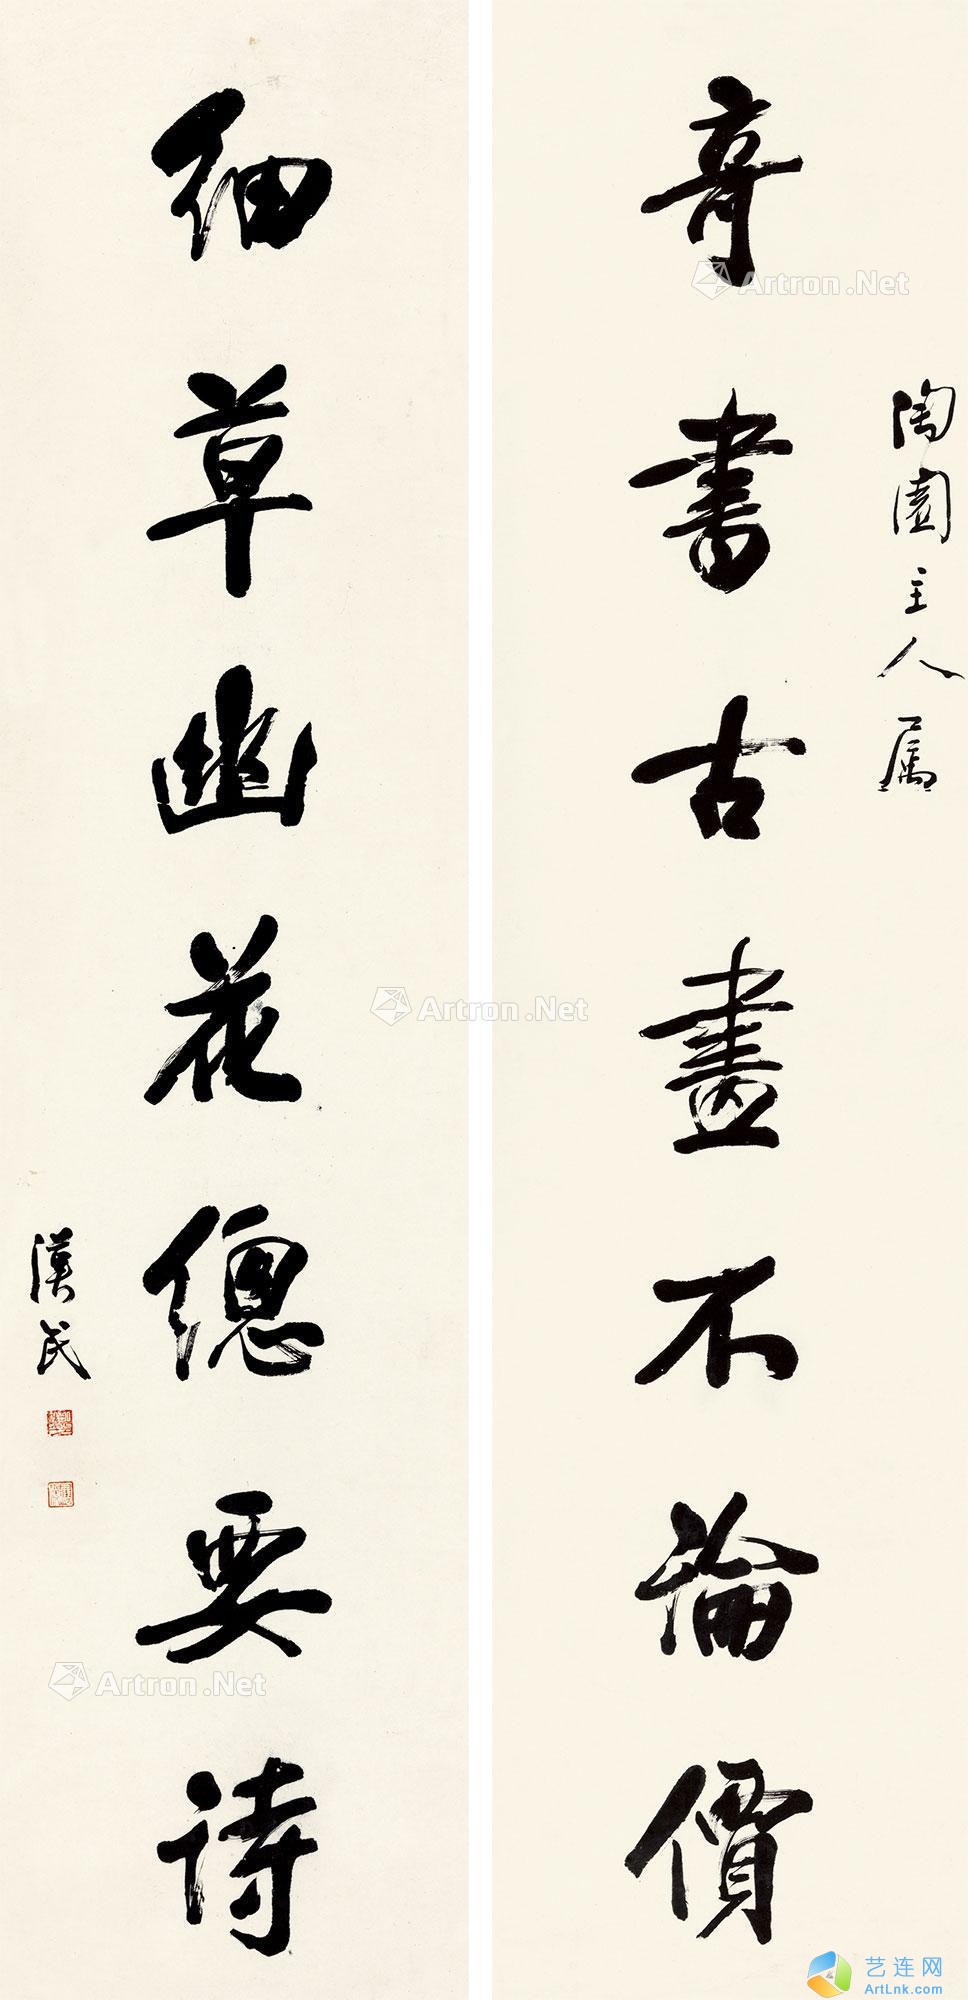 陶園主人屬
奇書古畫不論價
細草幽花總要詩
漢民
Artron.Net
Artron.Net
Artron.Net
艺连网
ArtLnk.com